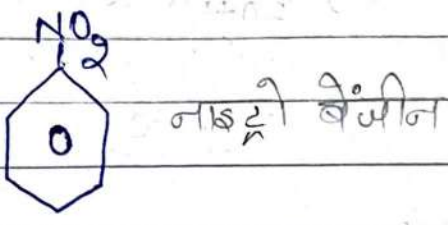 NO2
नाइट्रो बेंजीन